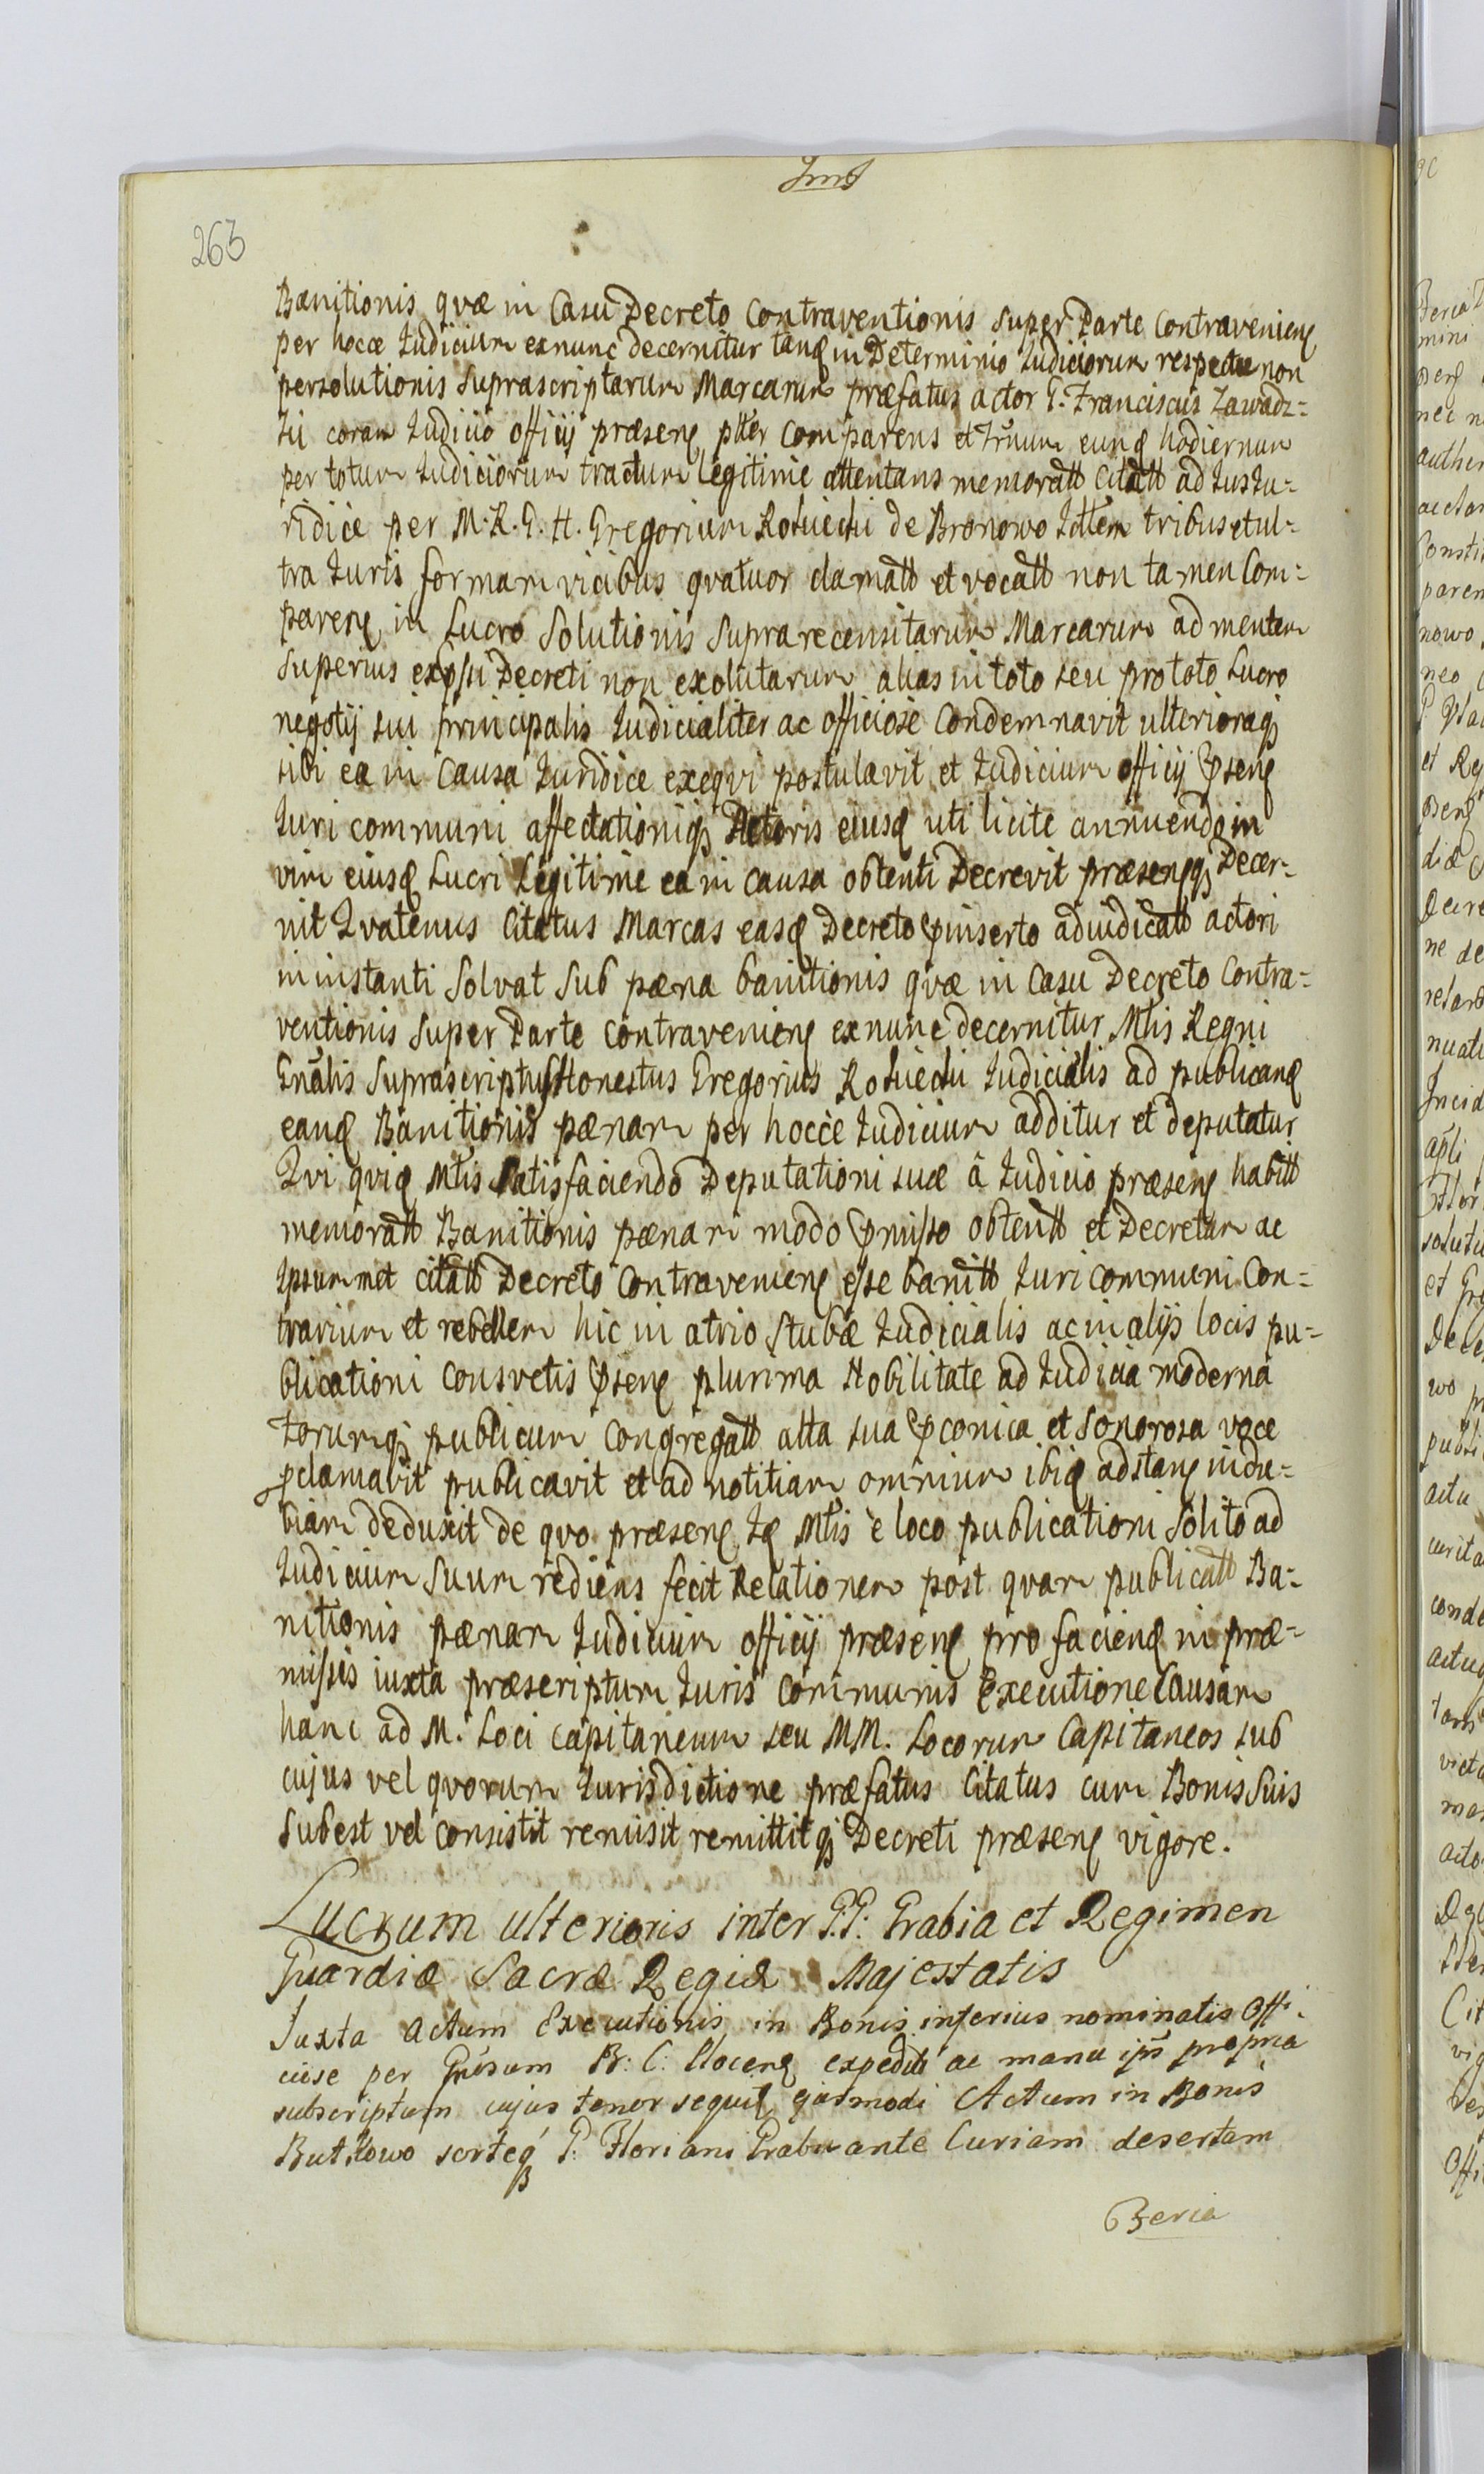 263
Banitionis qvæ in Casu Decreto Contraventionis super Parte Contravenienȩ
per hocce Judicium exnunc decernitur tanꝗ in Determinio Judiciorum respectu non
persolutionis suprascriptarum Marcarum præfatus actor G. Franciscus Zawadz=
ki coram Judicio officij præsenȩ plter Comparens et Trnum eunꝗ hodiernum
per totum Judiciorum tractum legitime attentans memoratt Citatt ad Jus Ju=
ridice per M. R. G. H. Gregorium Rosiecki de Bronowo Jdtem tribus et ul=
tra Juris formam vicibus qvatuor clamatt et vocatt non tamen Com=
parenȩ in Lucro Solutionis suprarecensitarum Marcarum ad mentem
superius expssi Decreti non exolutarum alias in toto seu pro toto Lucro
negotij sui principalis Judicialiter ac officiose Condemnavit ulterioraqȝ
sibi ea in Causa Juridice exeqvi postulavit et Judicium officij Pnsenȩ
Juri communi affectationiqȝ Actoris eiusꝗ uti licite annuendo in
vim eiusꝗ Lucri Legitime ea in causa obtenti Decrevit præsenȩqȝ Decer=
nit Qvatenus Citatus Marcas easꝗ Decreto Pinserto adiudicatt actori
in instanti Solvat Sub pæna banitionis qvæ in Casu Decreto Contra=
ventionis super Parte Contravenienȩ exnunc decernitur Mtis Regni
Gnalis Suprascriptus Honestus Gregorius Rosiecki Judicialis ad publicanꝗ
eanꝗ Banitionis pænam per hocce Judicium additur et deputatur
Qvi qviꝗ Mtis Satisfaciendo Deputationi suæ â Judicio præsenȩ habitt
memoratt Banitionis pænam modo Pmisso obtentt et Decretam ac
Ipsummet citatt Decreto Contravenienȩ esse banitt Juri communi Con=
trarium et rebellem hic in atrio Stubæ Judicialis ac in alijs locis pu=
blicationi Consvetis Psenȩ plurima Nobilitate ad Judicia moderna
Forumqȝ publicum Congregatt alta sua Pconica et Sonorosa voce
pclamavit publicavit et ad notitiam omnium ibiꝗ adstanȩ indu=
biam deduxit de qvo præsenȩ Jꝗ Mtis è loco publicationi Solito ad
Judicium Suum rediens fecit Relationem post qvam publicatt Ba=
nitionis pænam Judicium officij præsenȩ pro facienꝗ in præ=
missis iuxta præscriptum Juris Communis Executione Causam
hanc ad M. Loci Capitaneum seu MM. Locorum Capitaneos sub
cujus vel qvorum Jurisdictione præfatus Citatus cum Bonis Suis
Subest vel consistit remisit remittitqȝ Decreti præsenȩ vigore.
Lucrum ulterioris inter G.G: Grabia et Regimen
Guardiæ Sacræ Regiæ Majestatis
Juxta Actum Executionis in Bonis inferius nominatis Offi=
ciose per Gnrosum B: C: Nocenȩ expediti ac manu ips propria
subscriptum cujus tenor sequit ejusmodi Actum in Bonis
Butkowo sorteqȝ G. Floriani Grabu ante Curiam desertam
Beria